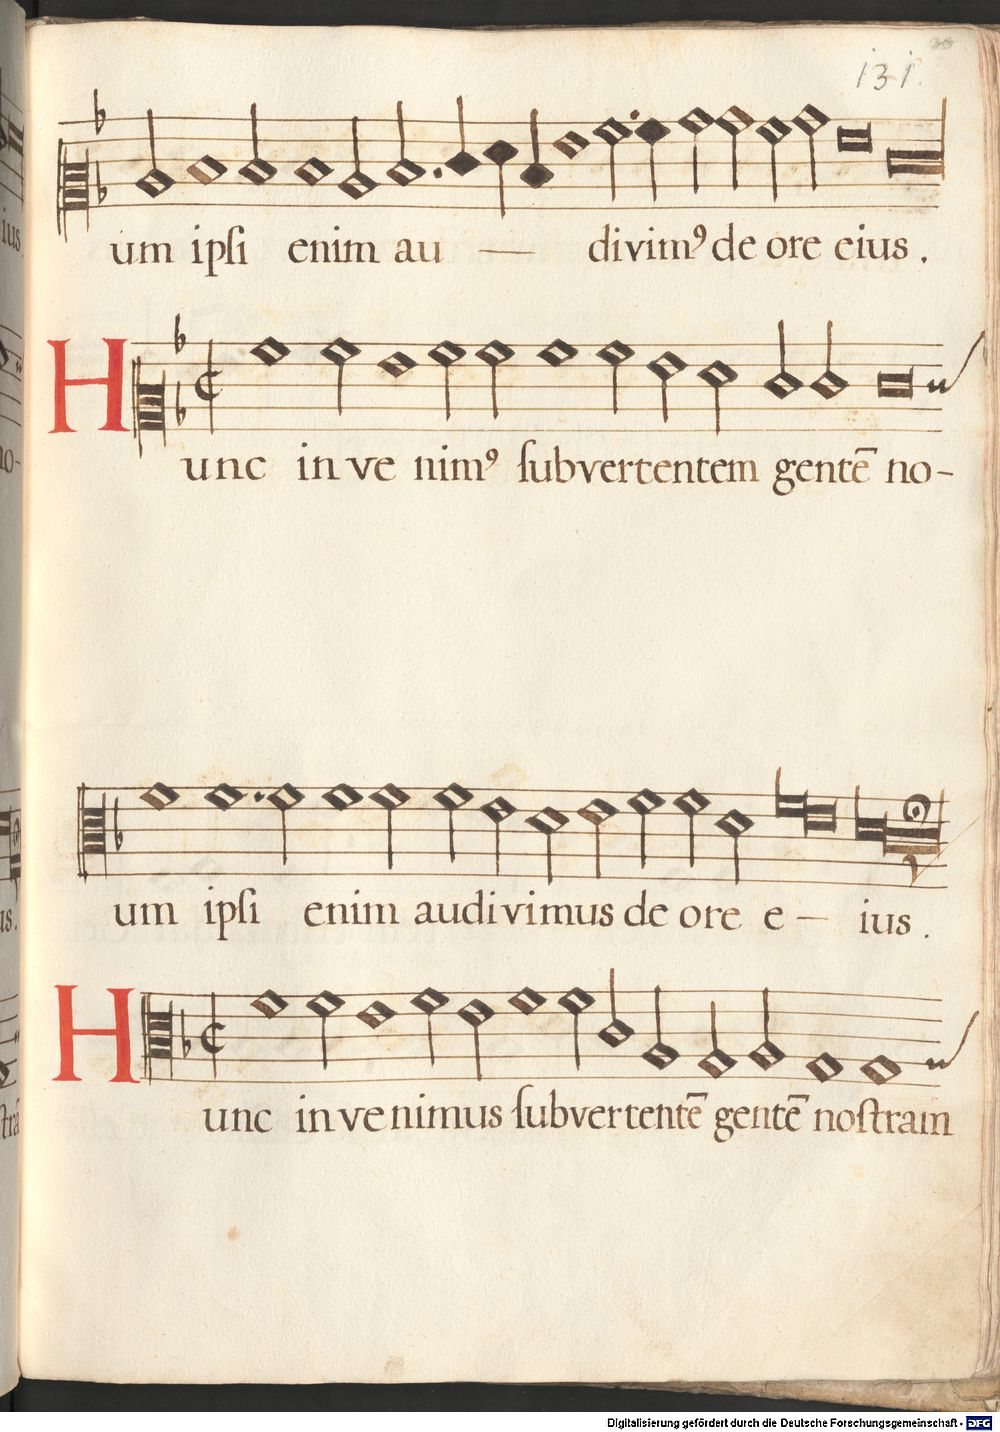 131.
um ipſi enim au — divim⁹ de ore eius .
Hunc inve nim⁹ ſubvertentem gentē no-
um ipſi enim audivimus de ore e — ius .
Hunc invenimus ſubvertentē gentē noſtram
Digitalisierung gefördert durch die Deutsche Forschungsgemeinschaft - DFG